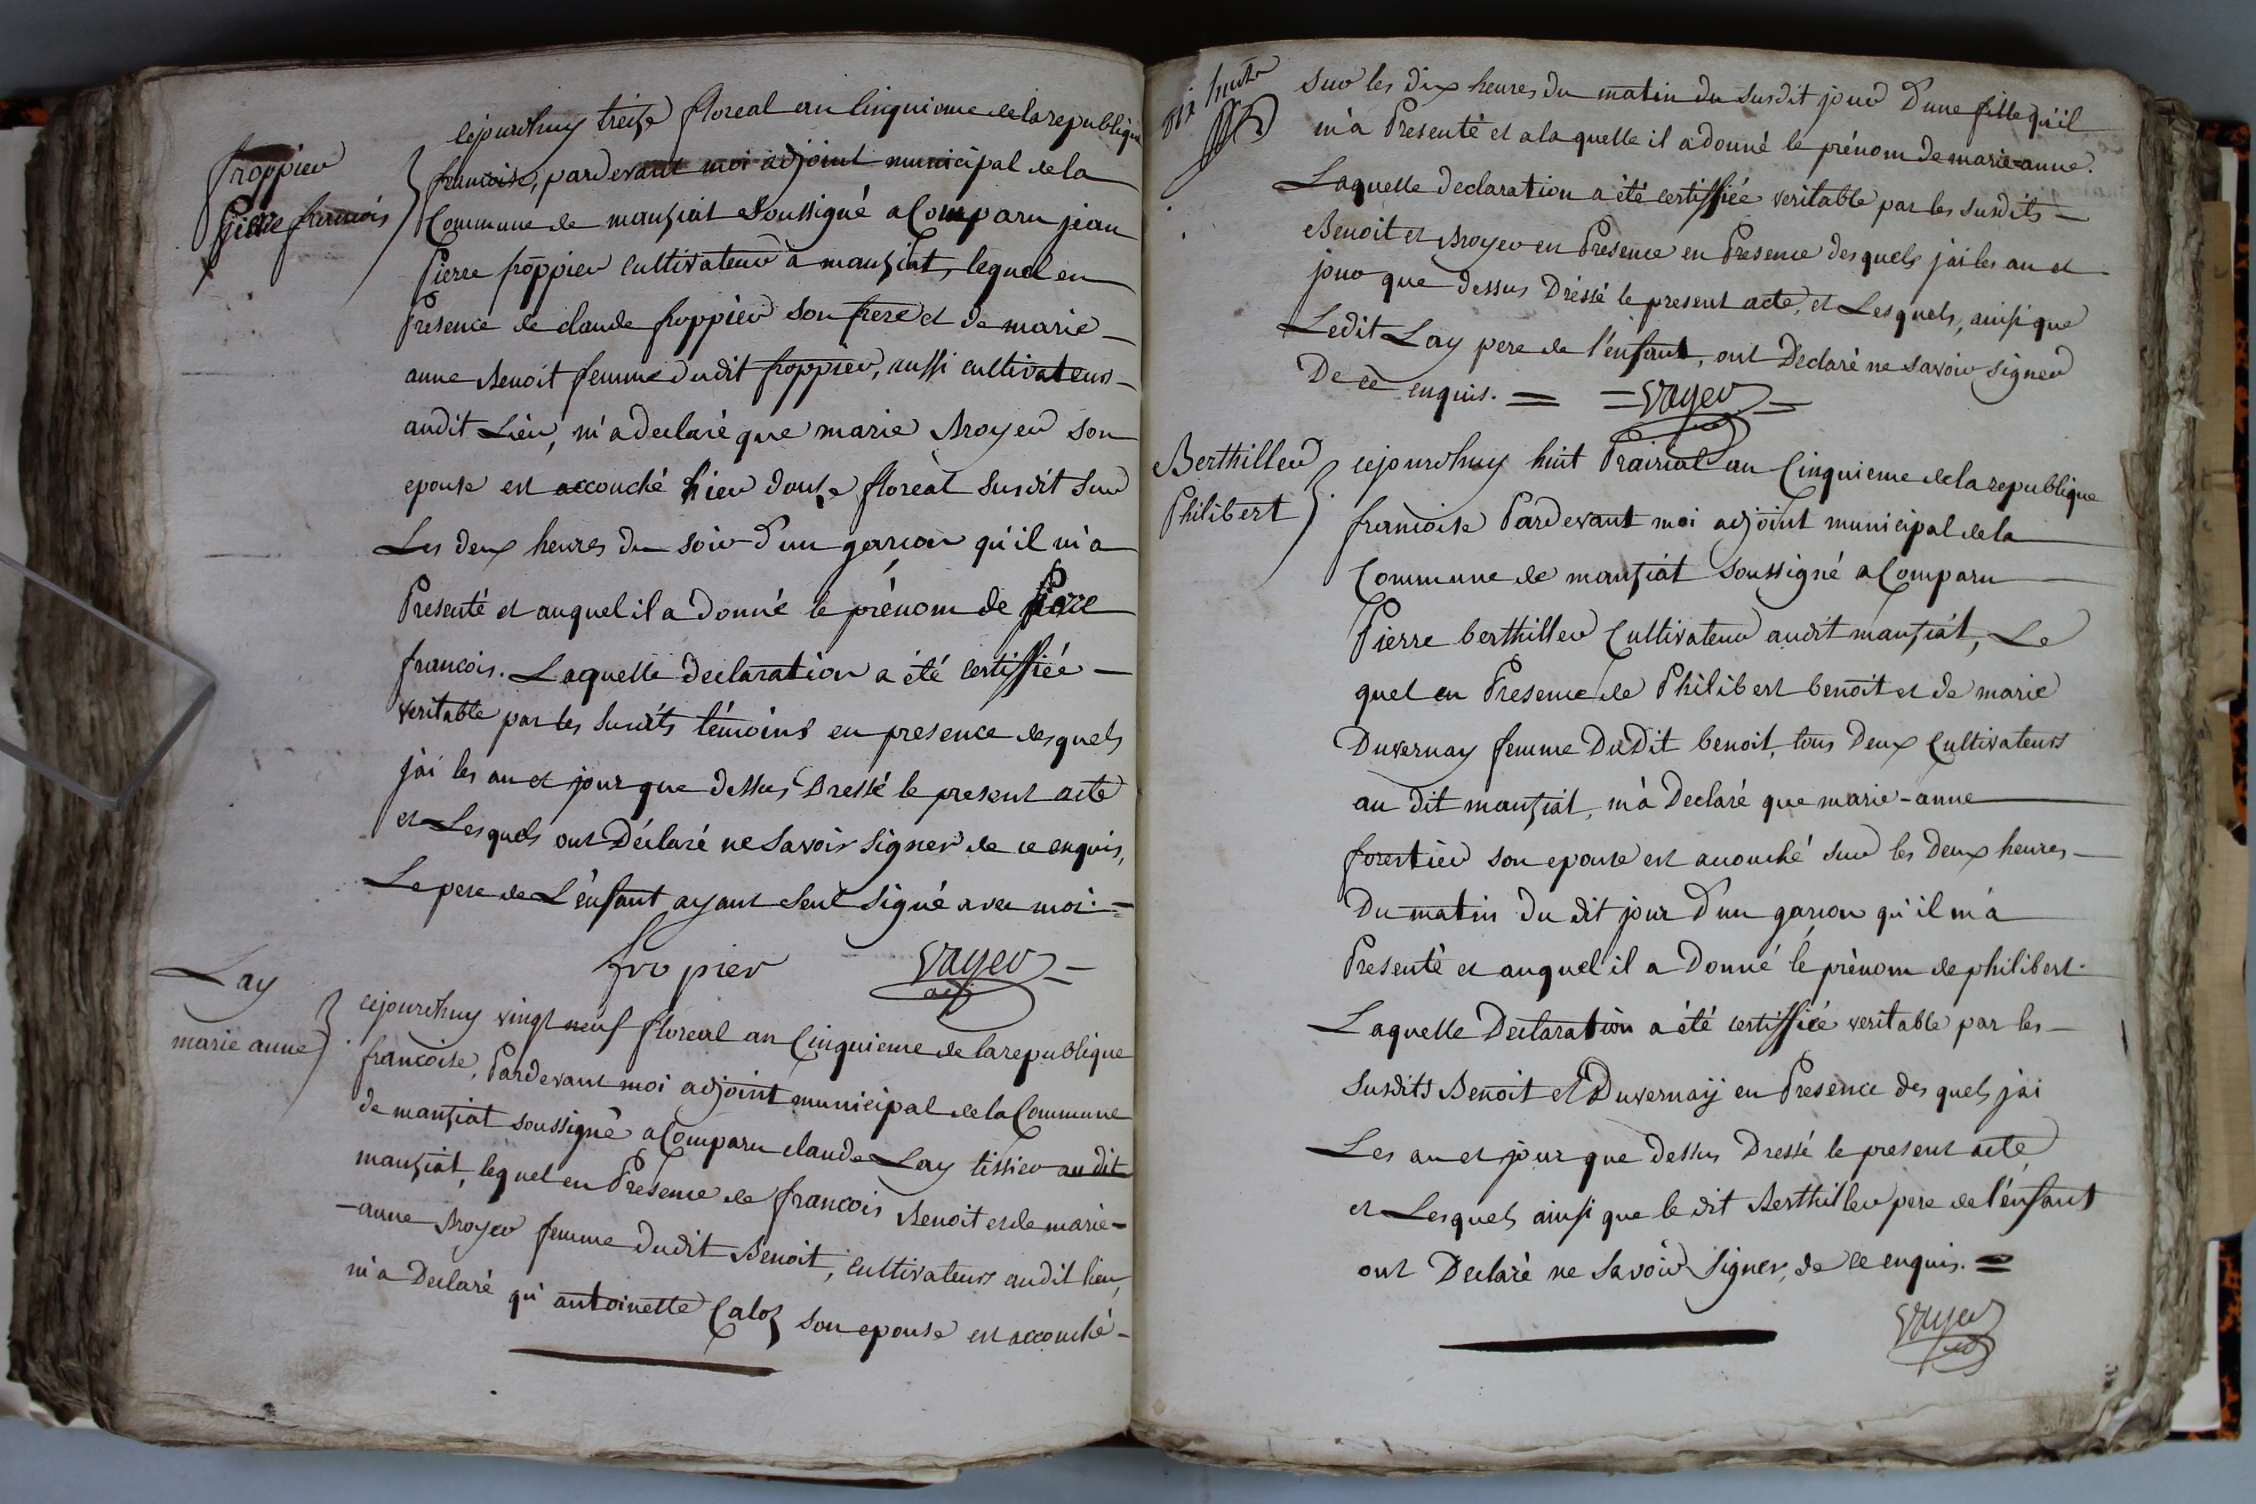 froppier
pierre francois
cejourdhuy treize floreal an Cinquieme de la republique
francoise, pardevant moi adjoint municipal de la
Commune de manziat soussigné a Comparu jean
Pierre froppier cultivateur à manziat, lequel en
Presence de claude froppiér son frere et de marie
anne Benoit femme dudit froppier, aussi cultivateurs
audit Lieu, m'a declaré que marie Broyer son
epouse est accouché hier douze floreal susdit sur
Les deux heures du soir d'un garcon qu'il m'a
Presenté et auquel il a donné le prénom de Pierre
francois. Laquelle declaration a été certiffiée
veritable par les susdits témoins en presence desquels
j'ai les an et jour que dessus Dressé le present acte
et Lesquels ont Déclaré ne savoir signer de ce enquis,
Le pere de L'enfant ayant seul signé avec moi. =
fropier Vayer
adj
Lay
marie anne
cejourdhuy vingt neuf floreal an Cinquieme de la republique
francoise, Pardevant moi adjoint municipal de la Commune
de manziat soussigné a Comparu claude Lay tissier au dit
manziat, lequel en Presence de francois Benoit et de marie-
-anne Broyer femme dudit Benoit, cultivateurs audit lieu,
m'a Declaré qu'antoinette Caloz son epouse est accouché
sur les dix heures du matin du susdit jour D'une fille qu'il
m'a Presenté et a la quelle il a donné le prénom de marie=anne.
Laquelle declaration a été certiffiée veritable par les susdits
Benoit et Broyer en Presence en Presence desquels j'ai les an et
jour que dessus Dréssé le present acte, et Lesquels, ainsi que
Ledit Lay pere de l'enfant, ont Declaré ne savoir signer
De ce enquis. = = Vayer
Berthiller
Philibert
cejourdhuy huit Prairial an Cinquieme de la republique
francoise Pardevant moi adjoint municipal de la
Commune de manziat soussigné a Comparu
Pierre berthiller Cultivateur audit manziat, Le
quel en Presence de Philibert benoit et de marie
Duvernay femme DuDit benoit, tous Deux Cultivateurs
au dit manziat, m'a Declaré que marie-anne
forestier son epouse est accouché sur les Deux heures
Du matin du dit jour D'un garcon qu'il m'a
Presenté et auquel il a Donné le prénom de philibert.
Laquelle Declaration a été certiffiée veritable par les
susdits Benoit et Duvernaÿ en Presence des quels j'ai
Les an et jour que dessus Dressé le present acte
et Lesquels ainsi que le dit Berthiller pere de l'enfant
ont Declaré ne savoir signer, de ce enquis. =
Vayer
adj